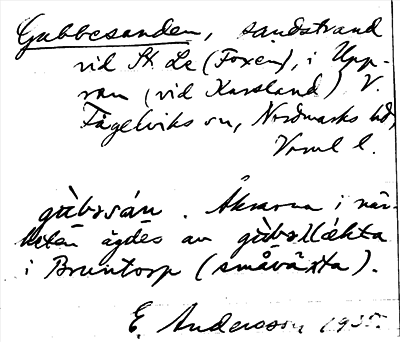 Gubbesanden, sandstrand
vid St. Le (Foxen), i Upp-
ran (vid Karsland) V.
Fågelviks sn, Nordmarks hd,
Värml l.
gùbəsán. Åkrarna i när-
heten ägdes av gùbəslækta
i Bruntorp (småväxta).
E. Andersson 1935.